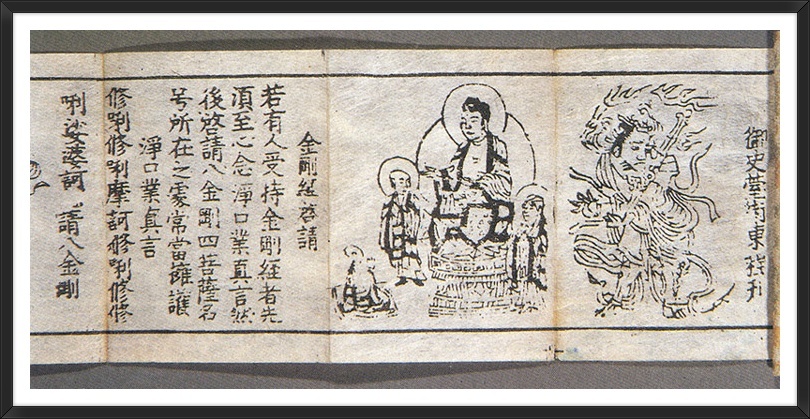 御史
金剛經啓請
若有人受持金剛經者先
須至心念淨口業真言然
後啓請八金剛四菩薩名
号所在之處常當擁護
淨口業真言
修唎修唎摩訶修唎修修
唎娑婆訶 請八金剛